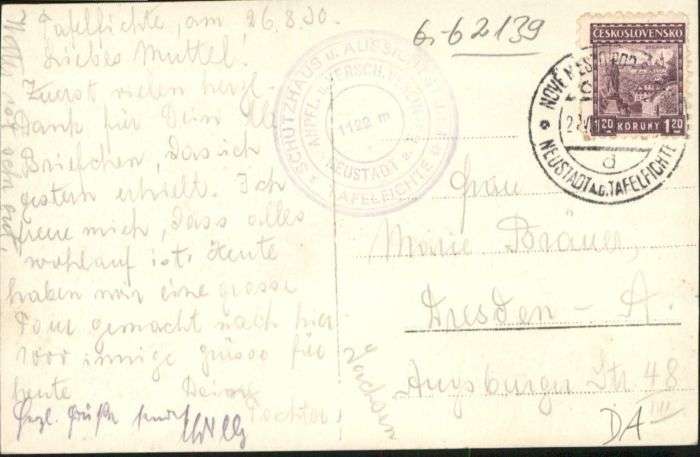 Tafelfichte, am 26.8.30.
Liebes Muttel!
Zuerst vielen herzl.
Dank für Dein lb.
Briefchen, das ich
gestern erhielt. Ich
freue mich, dass alles
wohlauf ist. Heute
haben wir eine grosse
Tour gemacht nach hier
1000 innige Grüsse für
heute Deine
Tochter
Herzl. Grüße sendet
Willy
6-62139
SCHUTZHAUS u. AUSSICHT
1122 m
NEUSTADT a.
TAFELFICHTE
ČESKOSLOVENSKO
1.20 KORUNY 1.20
NOVÉ MĚSTO POD
NEUSTADT A.D. TAFELFICHTE
a
Frau
Marie Bräuer,
Dresden - A.
Augsburger Str 48
III
Sachsen
DA